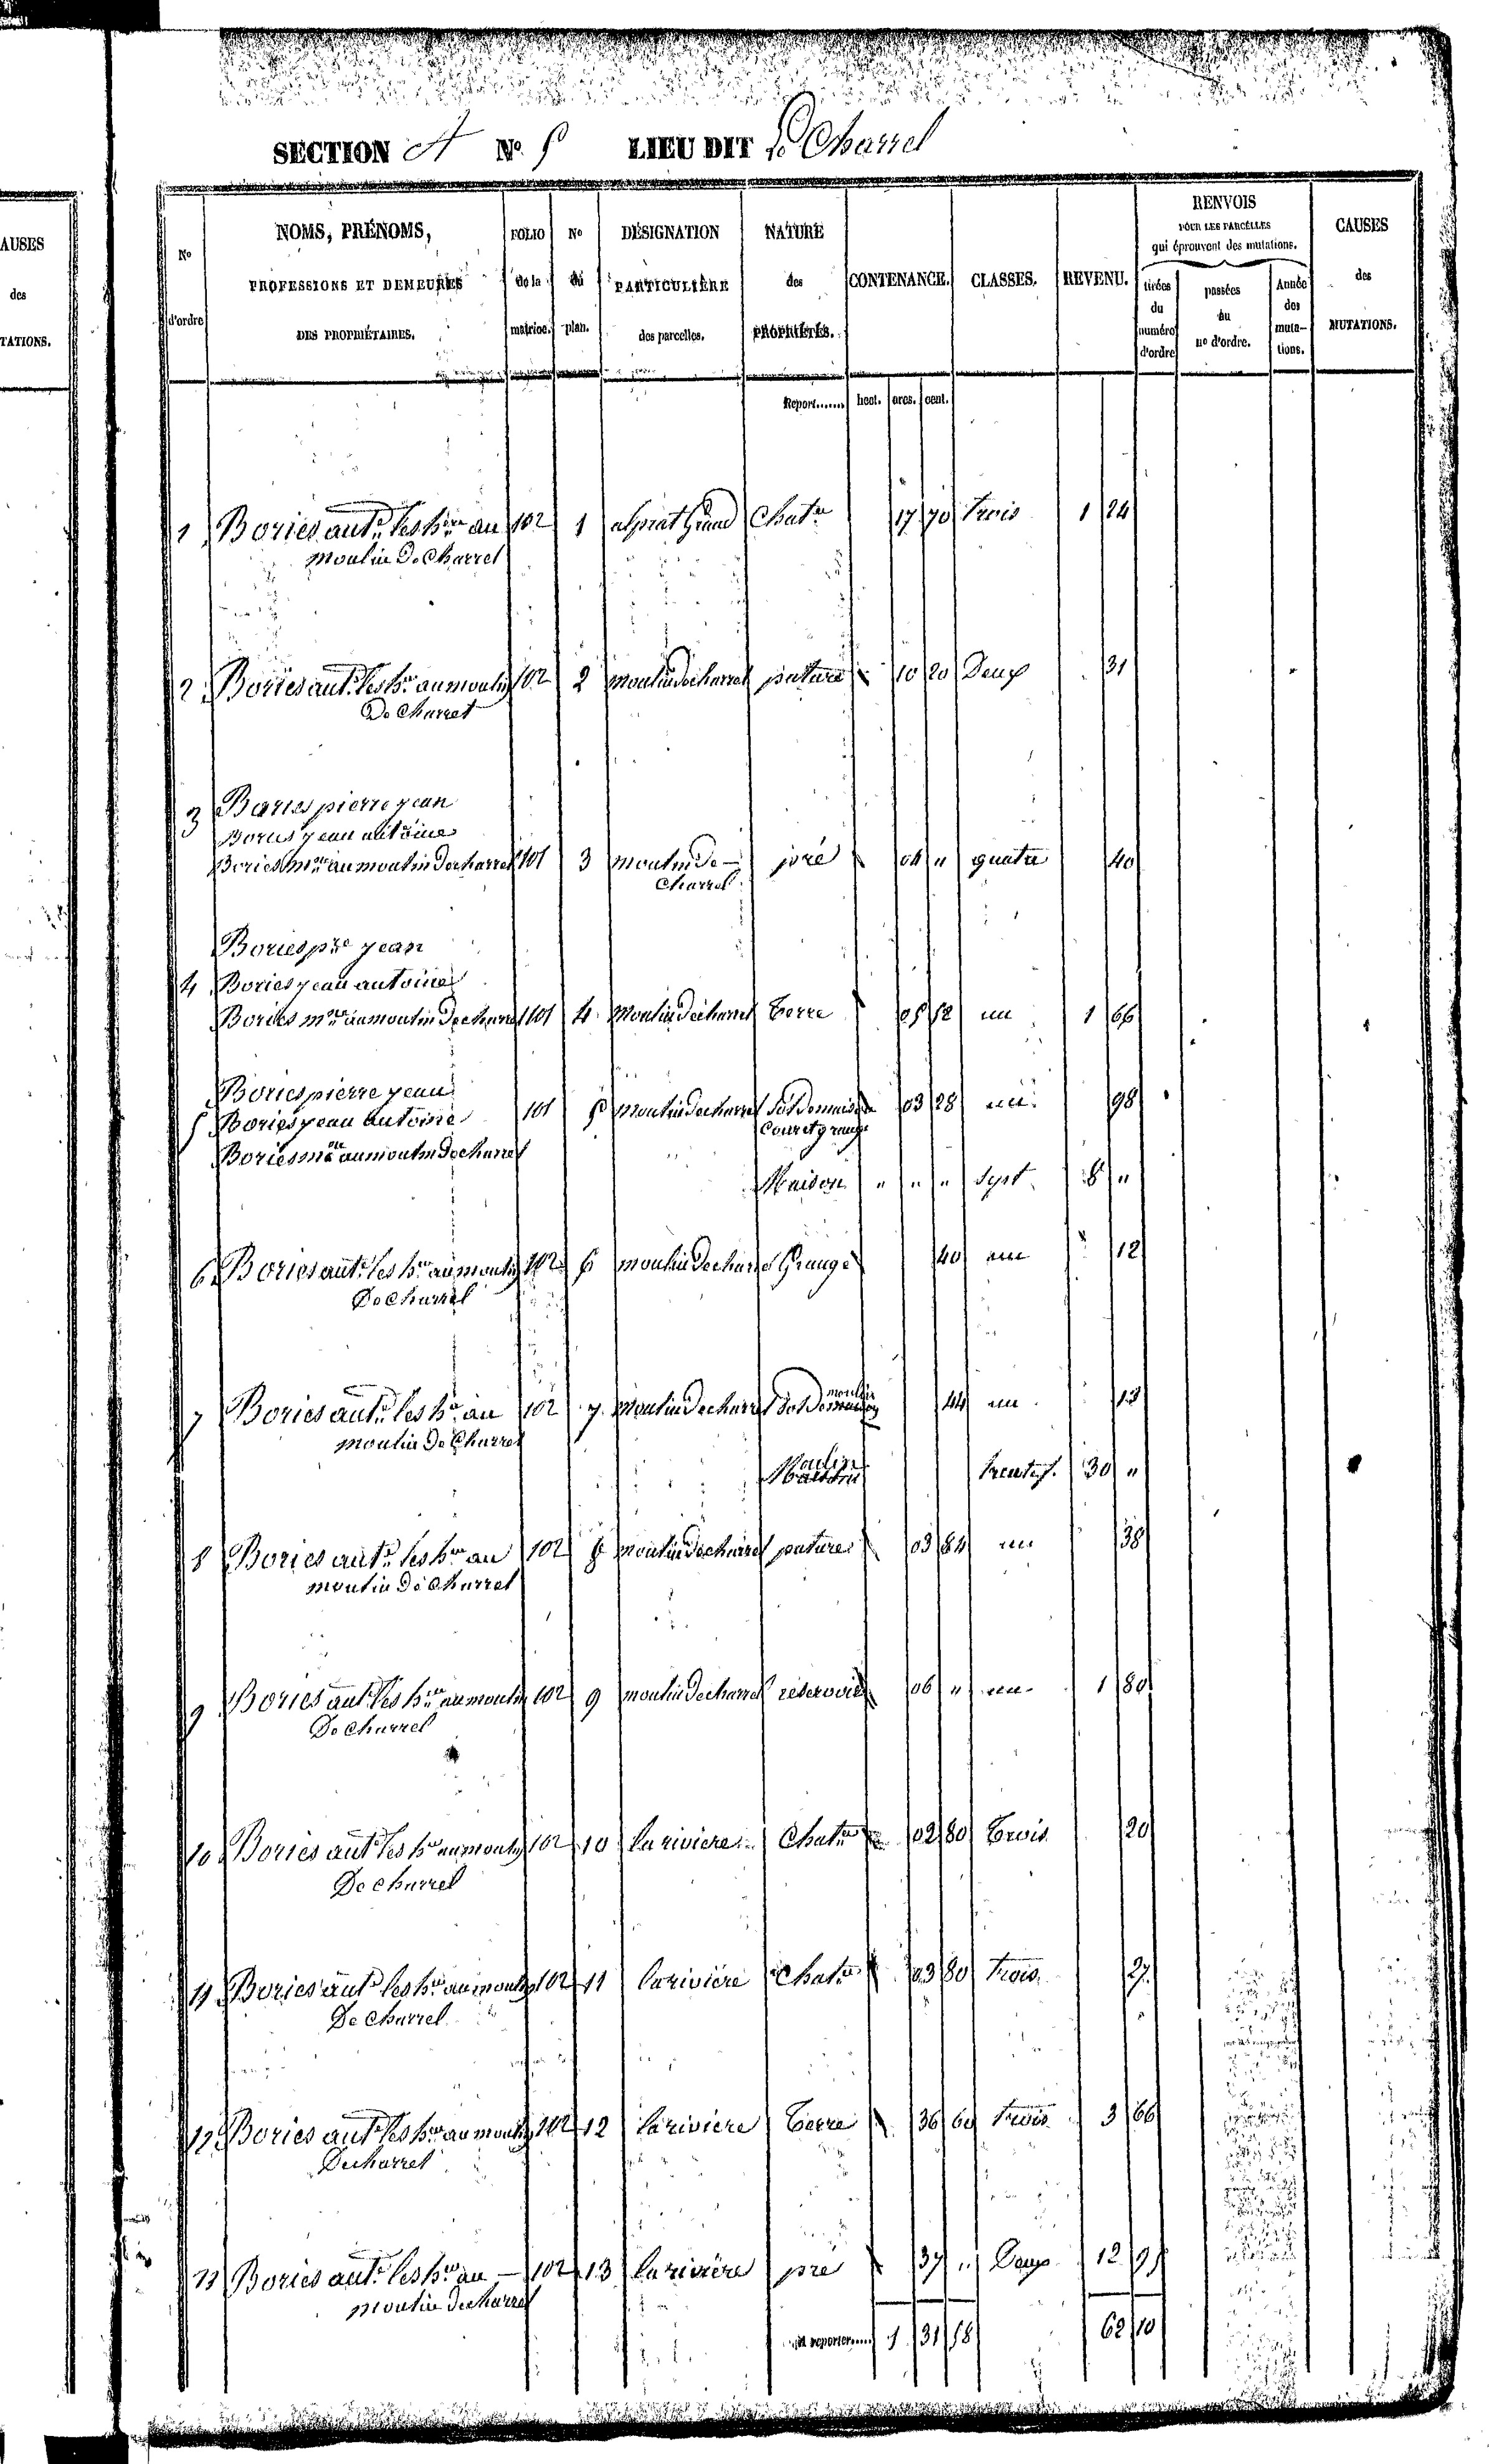 SECTION A No 5 LIEU DIT Le Charrel
AUSES
des
TATIONS.
No d'ordre
NOMS, PRÉNOMS, PROFESSIONS ET DEMEURES DES PROPRIÉTAIRES.
FOLIO de la matrice.
No du plan.
DÉSIGNATION PARTICULIÈRE des parcelles.
NATURE des PROPRIÉTÉS.
CONTENANCE.
CLASSES.
REVENU.
RENVOIS POUR LES PARCELLES qui éprouvent des mutations.
tirées du numéro d'ordre
passées au no d'ordre.
Année des muta-tions.
CAUSES des MUTATIONS.
Report....... hect. ares. cent.
1 Bories antne les hers au 102 1 Chatre 17 70 trois 1 24
moulin De Charrel
2 Bories antne les hers au moulin 102 2 moulin de charrel pature 10 20 Deux 31
De Charrel
3 Bories pierre jean
Bories jean antoine
Bories mrie au moulin de charrel 101 3 moulin De – pré 04 " quatre 40
Charrel
Bories pre jean
4 Bories jean antoine
Bories mrie au moulin de charrel 101 4 Moulin de charrel terre 05 52 un 1 66
Bories pierre jean
5 Bories jean antoine 101 5 moulin de charrel Sol De maison 03 28 un 98
Cour et grange
Bories mrie au moulin de charrel
Maison " " " sept 8 "
6 Bories antne les hers au moulin 102 6 moulin de charrel Grange 40 un 12
De Charrel
7 Bories antne les hers au 102 7 Moulin de charrel Sol De moulin 44 un 13
moulin De Charrel
Moulin 30 "
8 Bories antne les hers au 102 8 moulin de charrel pature 03 84 un 38
moulin De Charrel
9 Bories antne les hers au moulin 102 9 moulin de charrel réservoir 06 " un 1 80
De Charrel
10 Bories antne les hers au moulin 102 10 la riviere Chatre 02 80 trois 20
De Charrel
11 Bories antne les hers au moulin 102 11 la riviére Chatre 03 80 trois 27
De Charrel
12 Bories antne les hers au moulin 102 12 la riviere terre 36 60 trois 3 66
De charrel
13 Bories antne les hers au – 102 13 la riviére pré 37 " Deux 12 95
moulin de charrel
A reporter..... 1 31 58 62 10